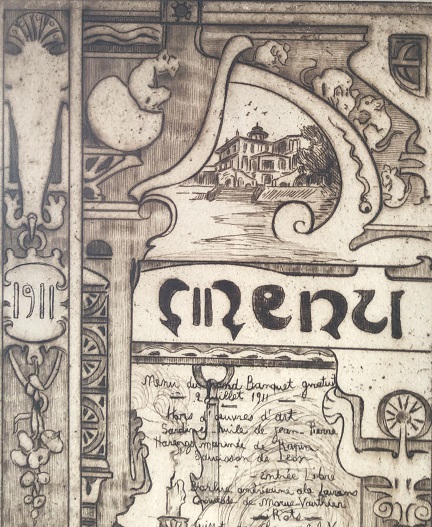 1911
Menu
Menu du grand Banquet gratuit
— 2 juillet 1911 —
Hors d'œuvres d'art
Sardines huile de Jean Pierre
Harengs de Rapin
Saucisson de Léon
entrée Libre
américaine à la Laurens
de
— Rots —